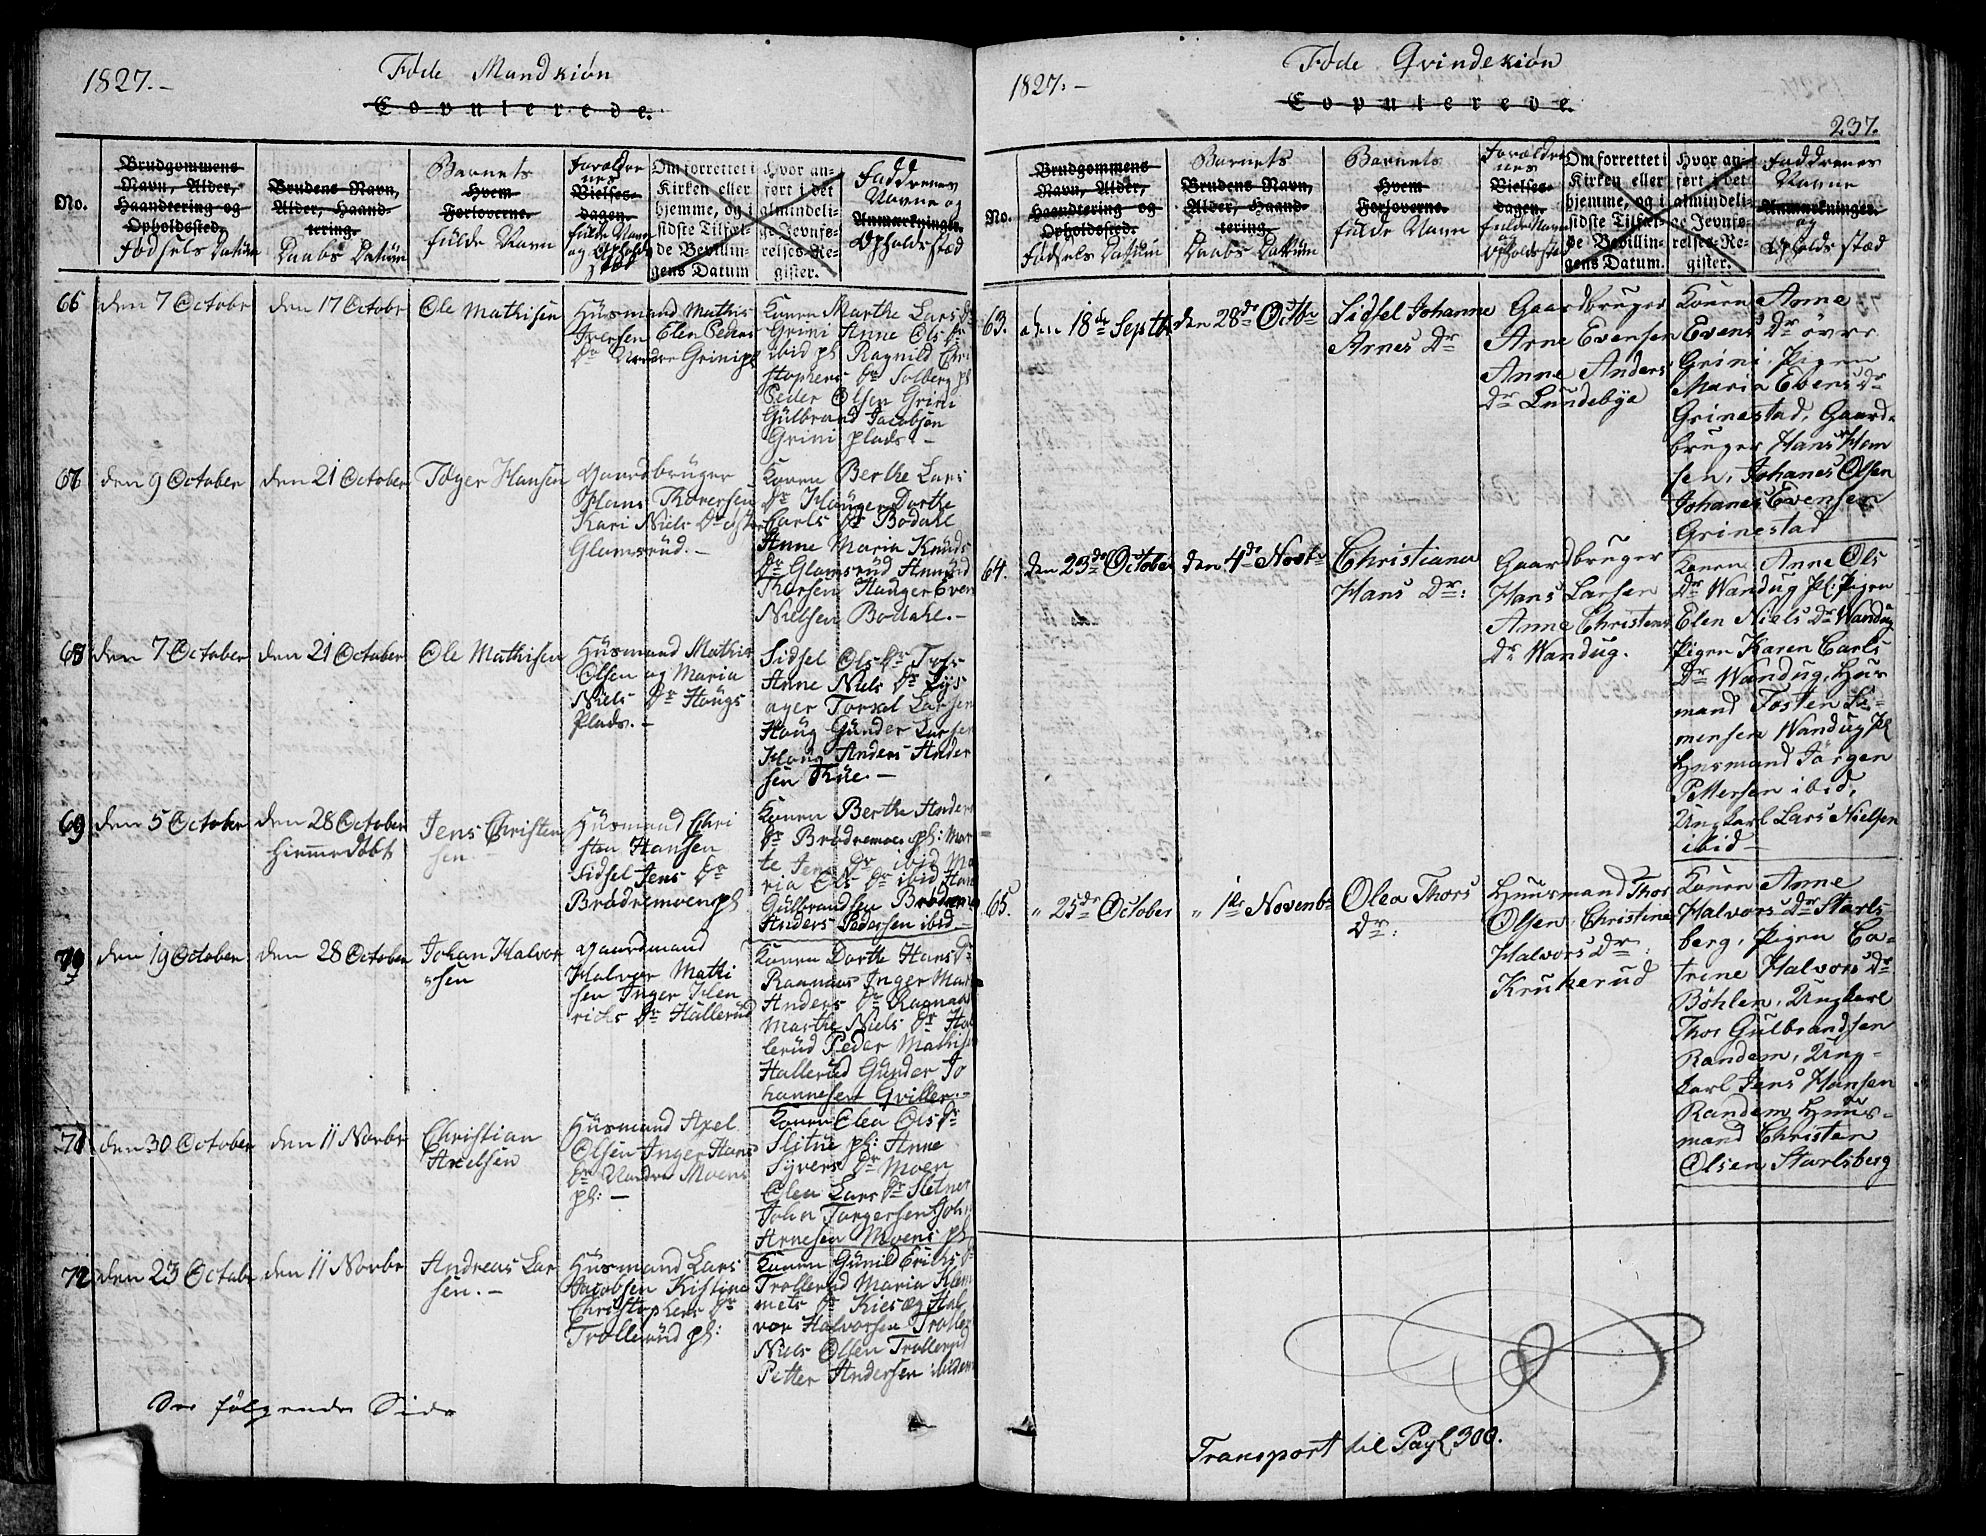 1827.-
Føde Mandkiøn
Copulerede.
No.
Brudgommens
Navn, Alder,
Haandtering og
Opholdssted.
Fødsels Datum
Brudens Navn,
Alder, Haand-
tering.
Daabs Datum
Barnets
Hvem
Forloverne.
fulde Navn
Foræld re
nes
Vielses-
dagen.
fulde Navn
og Opholds
stæd
Om forrettet i
Kirken eller
hjemme, og i
sidste Tilfæl-
de Bevillin-
gens Datum
Hvor an-
ført i det
almindeli-
ge Jevnfø-
relses-Re-
gister.
Faddrenes
Navne og
Anmærkninger.
Opholdstæd
66
den 7 Octobr
den 17 Octobr
Ole Mathisen
Huusmand Mathis
Iversen Elen Peders
Dr Nordre Grini pl
Konen Marthe Lars Dr
Grini Anne Ols Dr
ibid pl Ragnild Chri
stophers Dr Solberg pl
Peder Olsen Grini
Gulbrand Jacobsen
Grini plads.-
67
den 9 October
den 21 October
Toger Hansen
Gaardbruger
Hans Thoresen
Kari Niels Dr
Glamsrud.-
Konen Berthe Lars
Dr Hauger Dorthe
Carls Dr Bodahl
Anne Maria Knuds
Dr Glamsrud Amund
Thorsen Hauger Even
Nielsen Bodahl.-
68
den 7 October
den 21 October
Ole Mathisen
Huusmand Mathis
Olsen og Maria
Niels Dr Haugs
plads.-
Sidsel Ols Dr
Anne Niels Dr Lys
ager Torkel Larsen
Haug Gunder Larsen
Haug Anders Ander
sen Krie.-
69
den 5 October
den 28 October
Hiemme Døbt
Jens Christen
sen.-
Huusmand Chri
sten Hansen
Sidsel Jens Dr
Brødremoen pl
Konen Berthe Anders
Dr Brødremoen pl: Mar
te Jens Dr ibid Ma
ria Ols Dr ibid Hans
Gulbrandsen Brødremo
Anders Pedersen ibid.-
70
den 19 October
den 28 October
Johan Halvor
sen
Gaardmand
Halvor Mathi
sen Inger Hen
richs Dr Hallerud
Konen Dorthe Hans Dr
Raanaas Inger Mari
Anders Dr Ragnaas
Marthe Niels Dr Hal
lerud Peder Mathis
Hallerud Gunder Jo
hannesen Qviller.-
71
den 30 October
den 11 Novbr
Christian
Axelsen
Huusmand Axel
Olsen Inger Hans
Dr Nordre Moens
pl: -
Konen Elea Ols Dr
Slitue pl: Anne
Syvers Dr Moen
Olea Lars Dr Sletner
John Torgersen John
Arnesen Moens pl.
72
den 23 Octobr
den 11 Novbr
Andreas Lar
sen.-
Huusmand Lars
Jacobsen Kistine
Christophers Dr
Trollerud pl:
Konen Gunild Erichs Dr
Trollerud Maria Klem
mets Dr Kiesæg Hal
vor Halvorsen Troller
Niels Olsen Trollerud
Petter Andersen ibidem
See følgende Side
1827.-
Føde Qvindekiøn
Copulerede.
237.
No.
Brudgommens
Navn, Alder,
Haandtering og
Opholdssted.
Fødsels Datum
Barnets
Brudens Navn,
Alder, Haand-
tering.
Daabs Datum
Barnets
Hvem
Forloverne.
fulde Navn
Forældre
nes
Vielses-
dagen.
fulde Navn
og
Opholdstæd
Om forrettet i
Kirken eller
hjemme, og i
sidste Tilfæl-
de Bevillin-
gens Datum.
Hvor an-
ført i det
almindeli-
ge Jevnfø-
relses-Re-
gister.
Faddrenes
Navne
Anmærkninger.
og
Opholds stæd
63.
den 18de Septbr
den 28de Octbr
Sidsel Johanne
Arnes Dr
Gaardbruger
Arne Evensen
Anne Anders
Dr Lundebye
Konen Anne
Evens Dr øvre
Grini, Pigen
Maria Evens Dr
Grinestad, Gaard-
bruger Hans Hem
sen, Johanes Olsen
Johanes Evensen
Grinestad
64.
den 23de October
den 4de Novbr
Christiana
Hans Dr:
Gaardbruger
Hans Larsen
Anne Christens
Dr Wandug.
Konen Anne Ols
Dr Wandug Pl: Pigen
Elen Niels Dr Wandug
Pigen Karen Carls
Dr Wandug, Huus
mand Tosten Si-
mensen Wandug Pl
Huusmand Jørgen
Pettersen ibid,
Ungkarl Lars Nielsen
ibid
65.
" 25de October
" 1de Novenbr
Olea Thors
Dr:
Huusmand Thor
Olsen Christine
Halvors Dr:
Krukerud
Konen Anne
Halvors Dr Starls-
berg, Pigen Ca-
trine Halvors Dr
Bøhlen, Ungkarl
Thor Gulbrandsen
Randem, Ung-
karl Jens Hansen
Randem Huus-
mand Christen
Olsen Starlsberg
Transport til Pag 300.